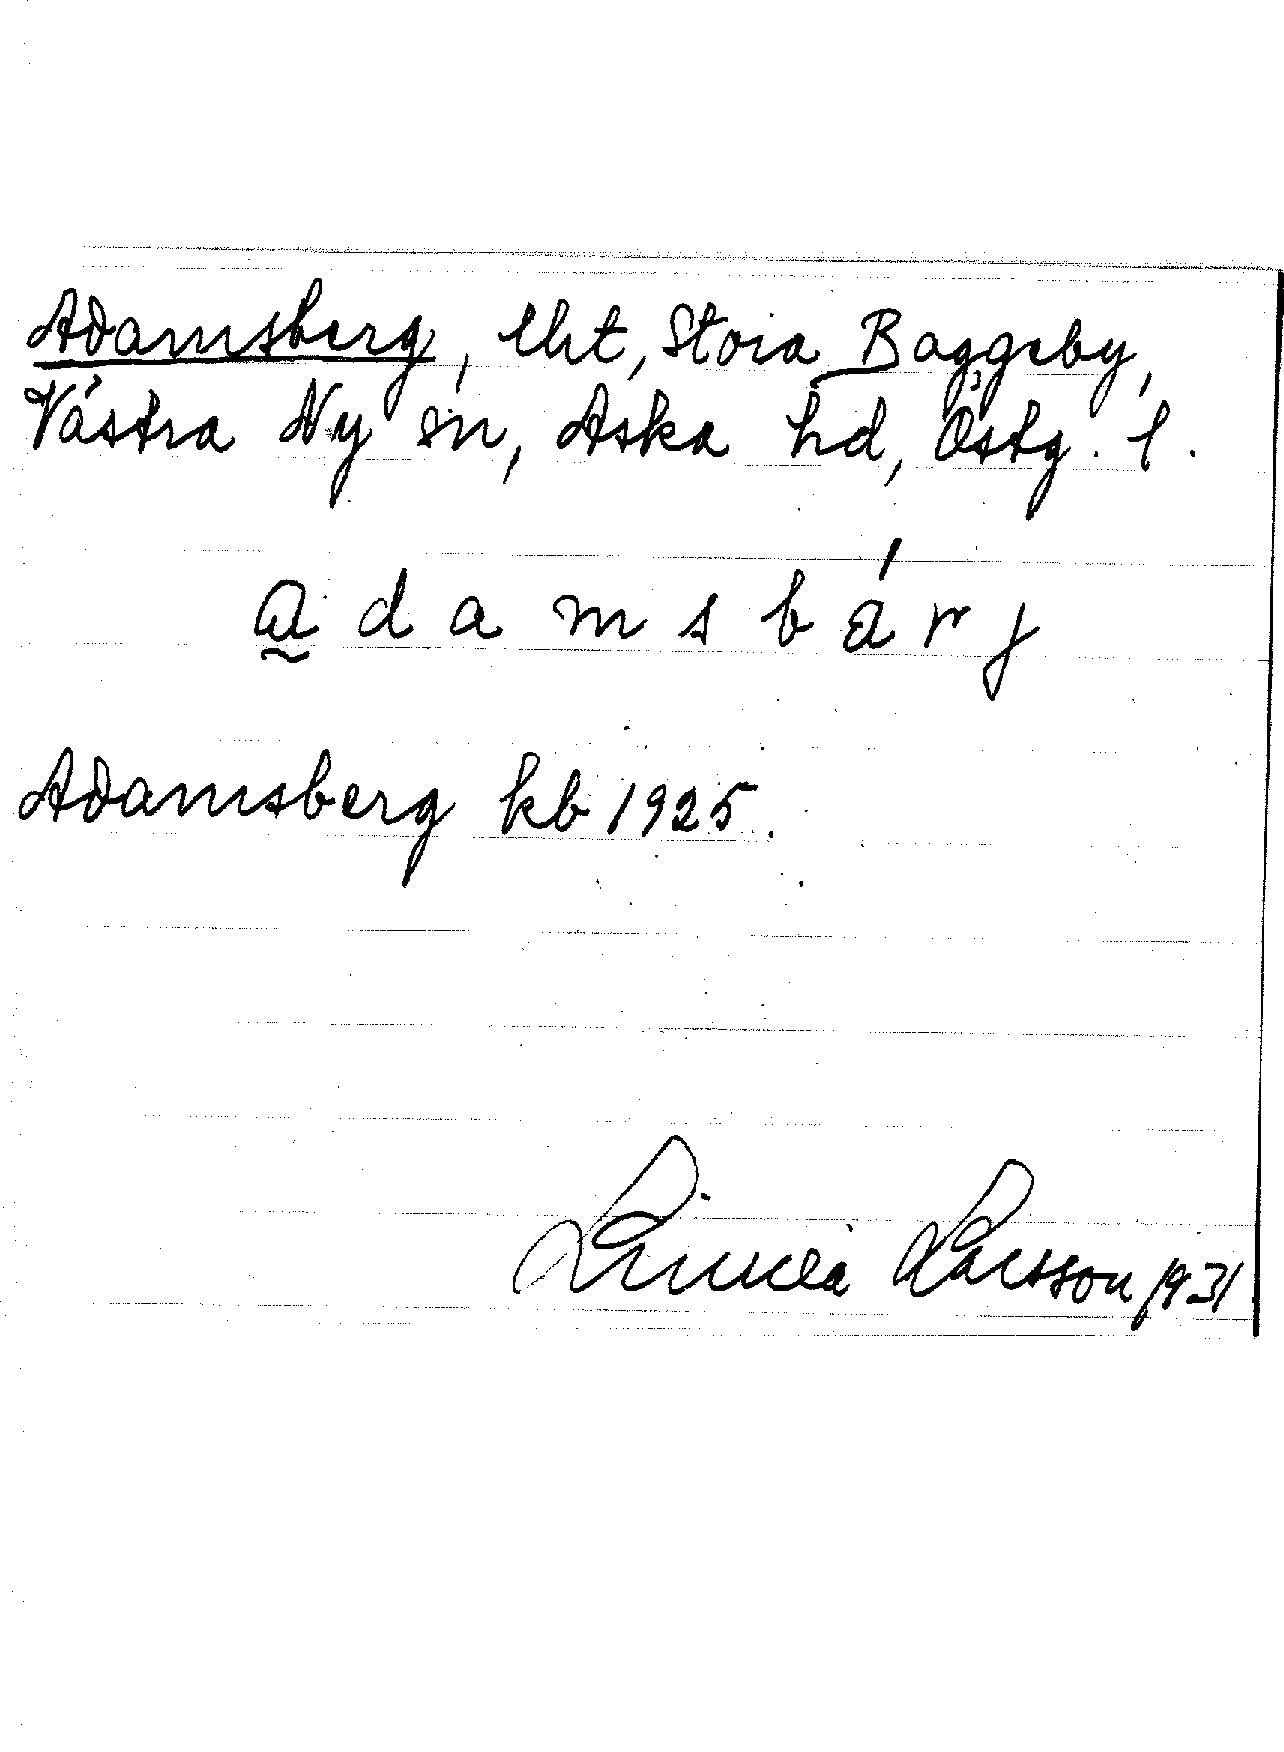 Adamsberg, lht, Stora Baggeby,
Västra Ny sn, Aska hd, Östg. l.
a d a m s b ä r j
Adamsberg kb 1925.
Linnea Larsson 1931